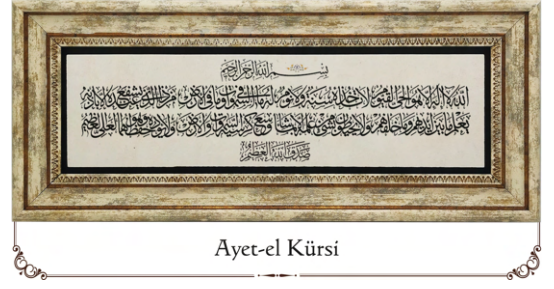 بسم الله الرحمن الرحيم
الله لا إله إلا هو الحي القيوم لا تأخذه سنة ولا نوم له ما في السموات وما في الأرض من ذا الذي يشفع عنده إلا بإذنه
يعلم ما بين أيديهم وما خلفهم ولا يحيطون بشيء من علمه إلا بما شاء وسع كرسيه السموات والأرض ولا يؤده حفظهما وهو العلي العظيم
صدق الله العظيم
Ayet-el Kürsi